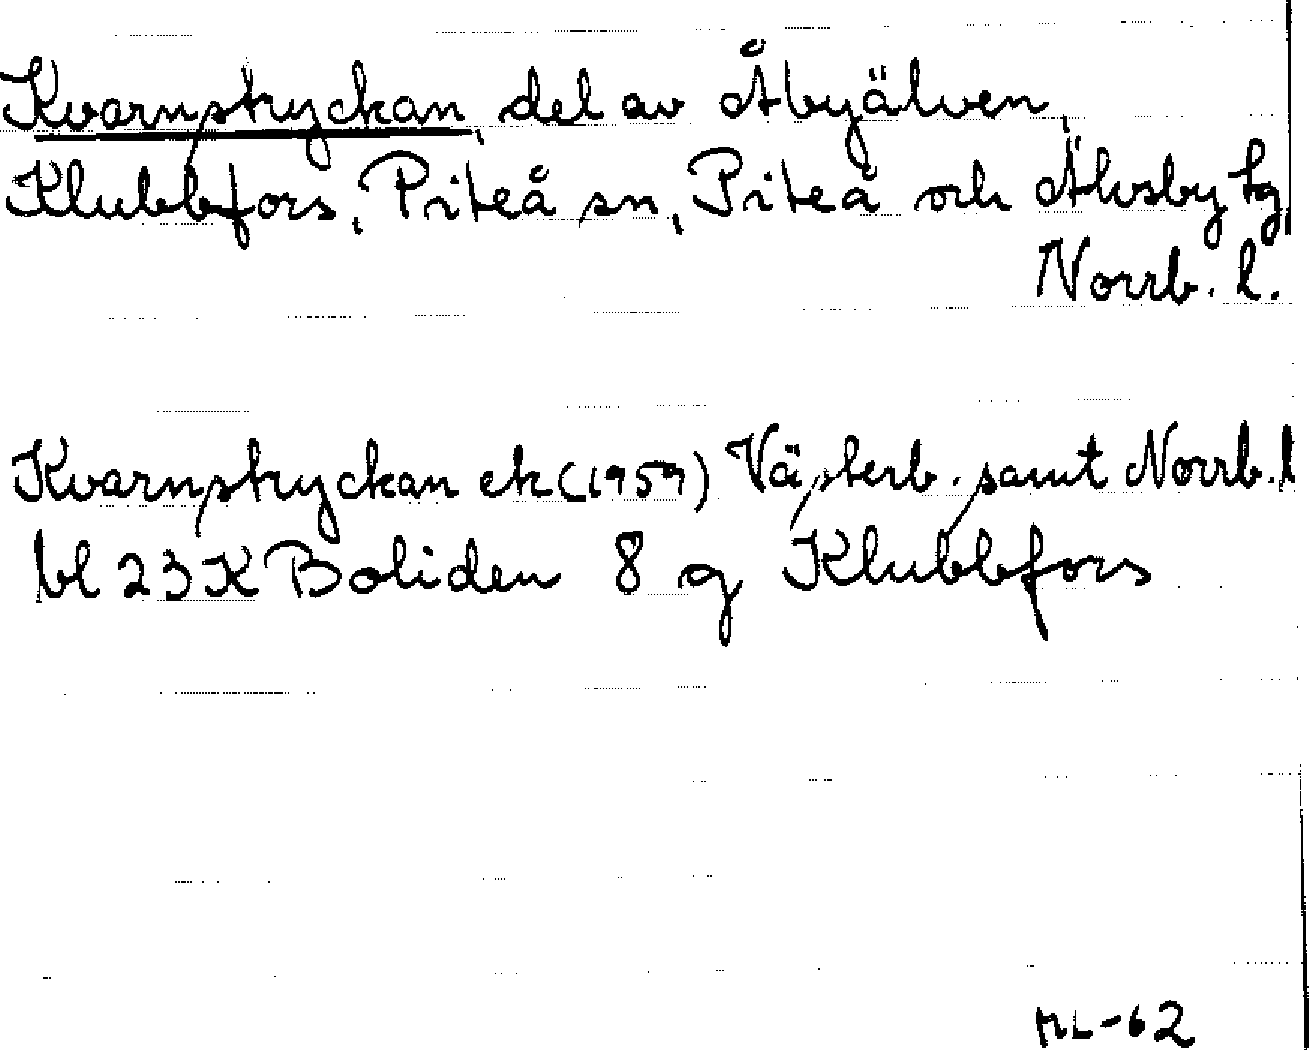 Kvarnstryckan, del av Åbyälven,
Klubbfors, Piteå sn, Piteå och Älvsby tg,
Norrb. l.
Kvarnstryckan ek (1959) Västerb. samt Norrb. l
bl 23 K Boliden 8 g Klubbfors
ML-62